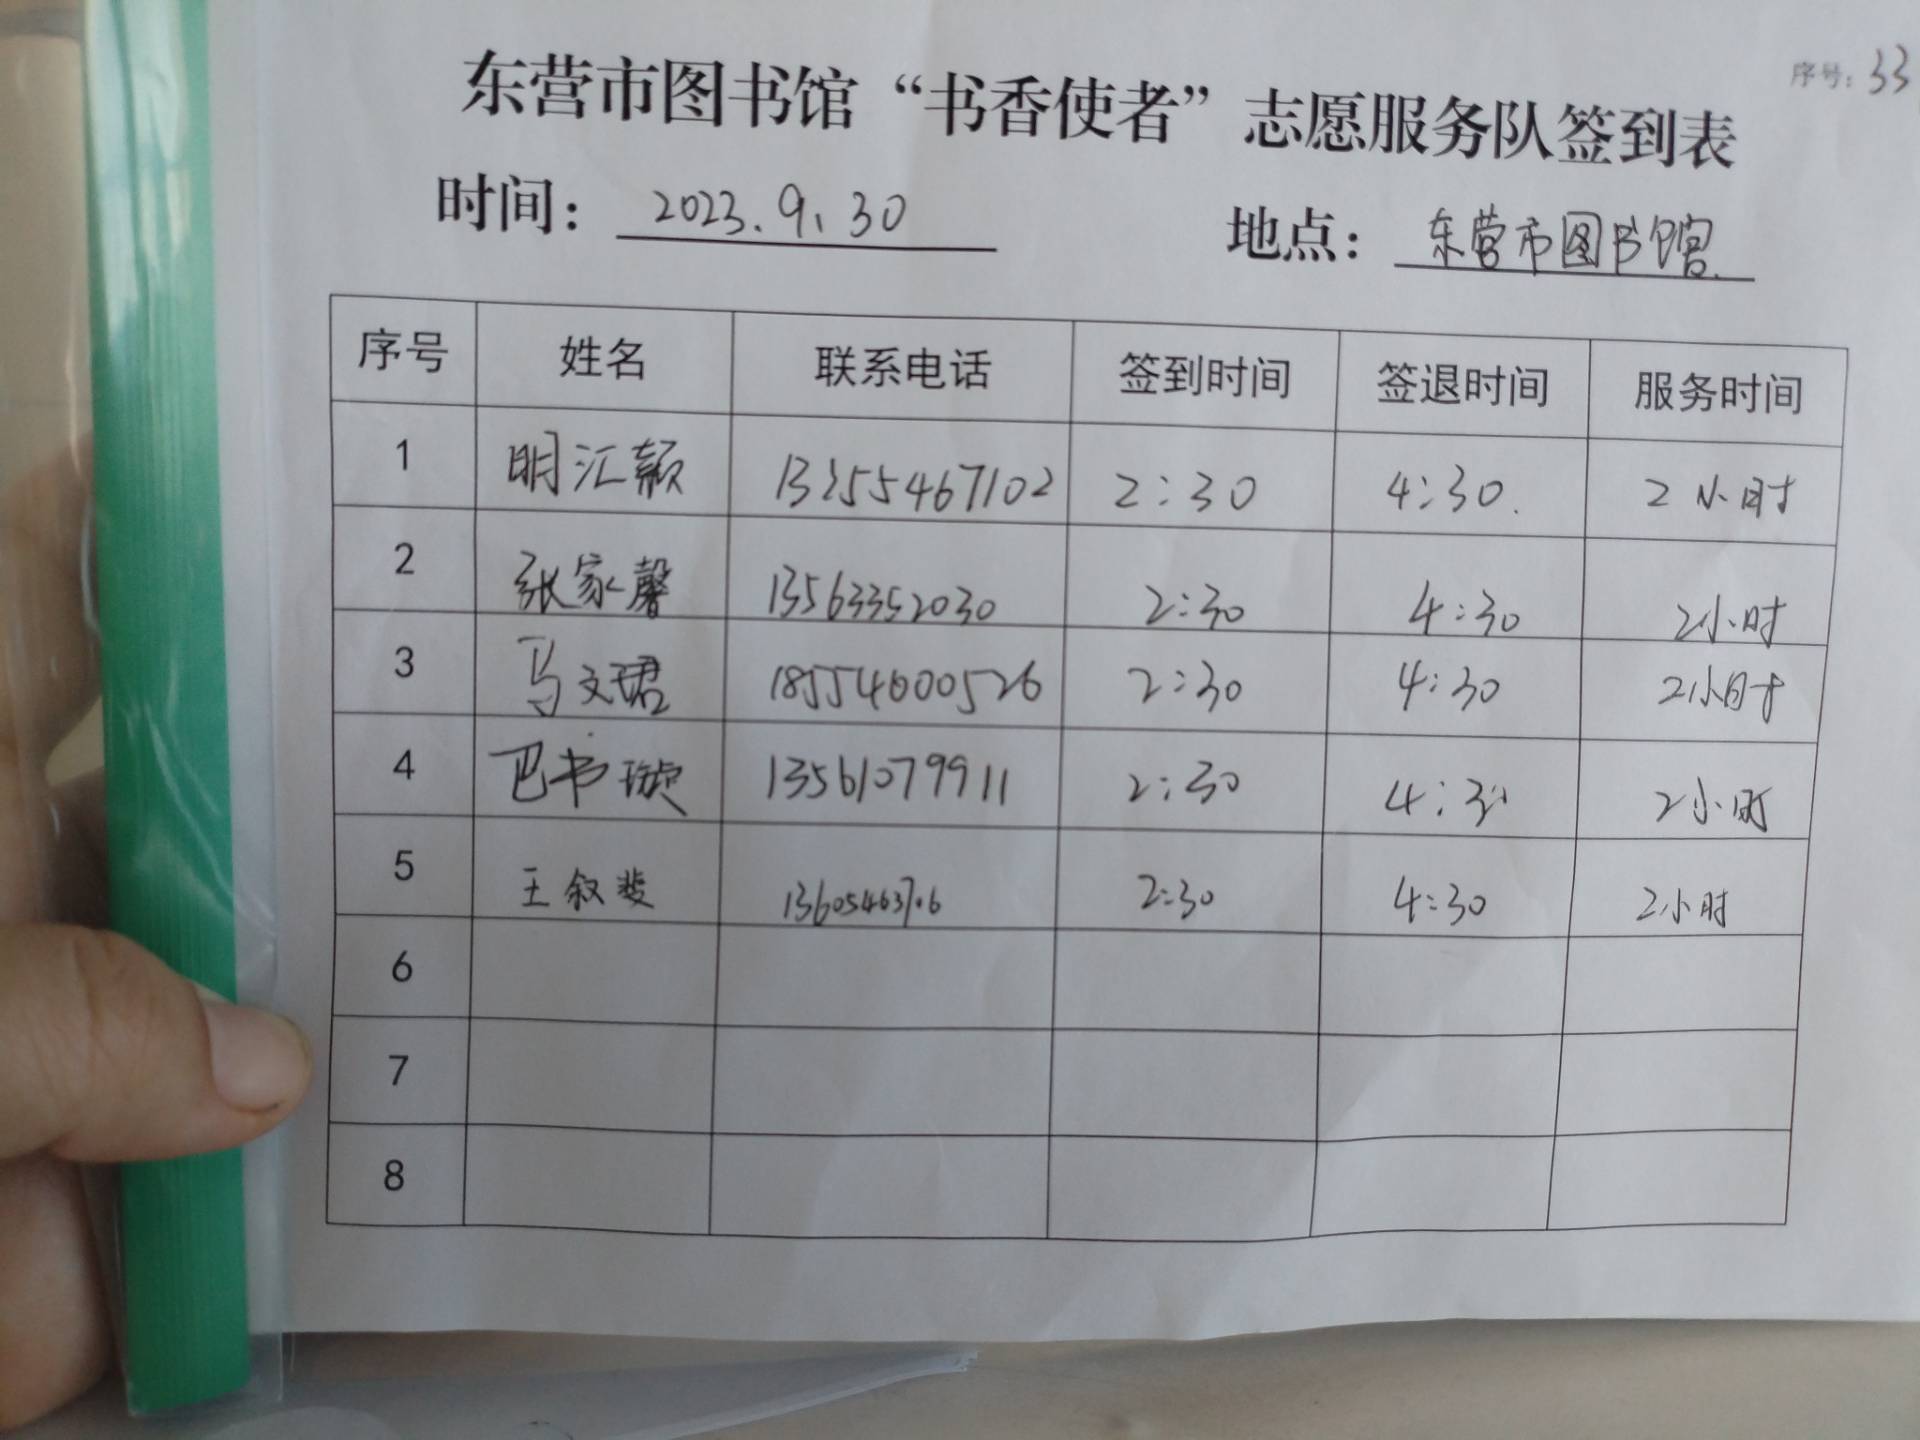 序号：33
东营市图书馆“书香使者”志愿服务队签到表
时间：2023.9.30 地点：东营市图书馆
序号 姓名 联系电话 签到时间 签退时间 服务时间
1 明汇颖 13255467102 2:30 4:30. 2小时
2 张家馨 13563352030 2:30 4:30 2小时
3 马文珺 18554600526 2:30 4:30 2小时
4 巴书璇 13561079911 2:30 4:30 2小时
5 王叙斐 13605463706 2:30 4:30 2小时
6
7
8